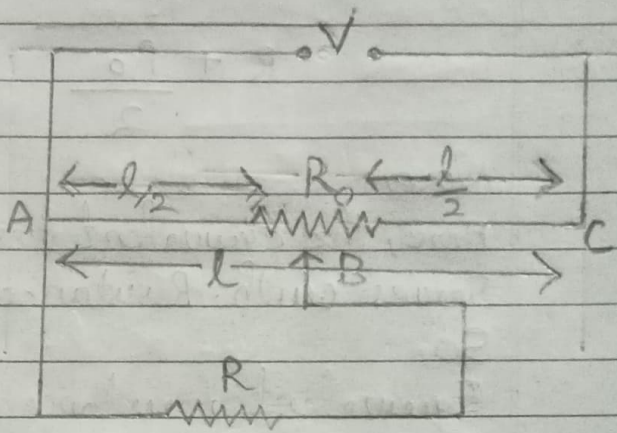 V
l/2 R₀ l/2
A C
l B
R